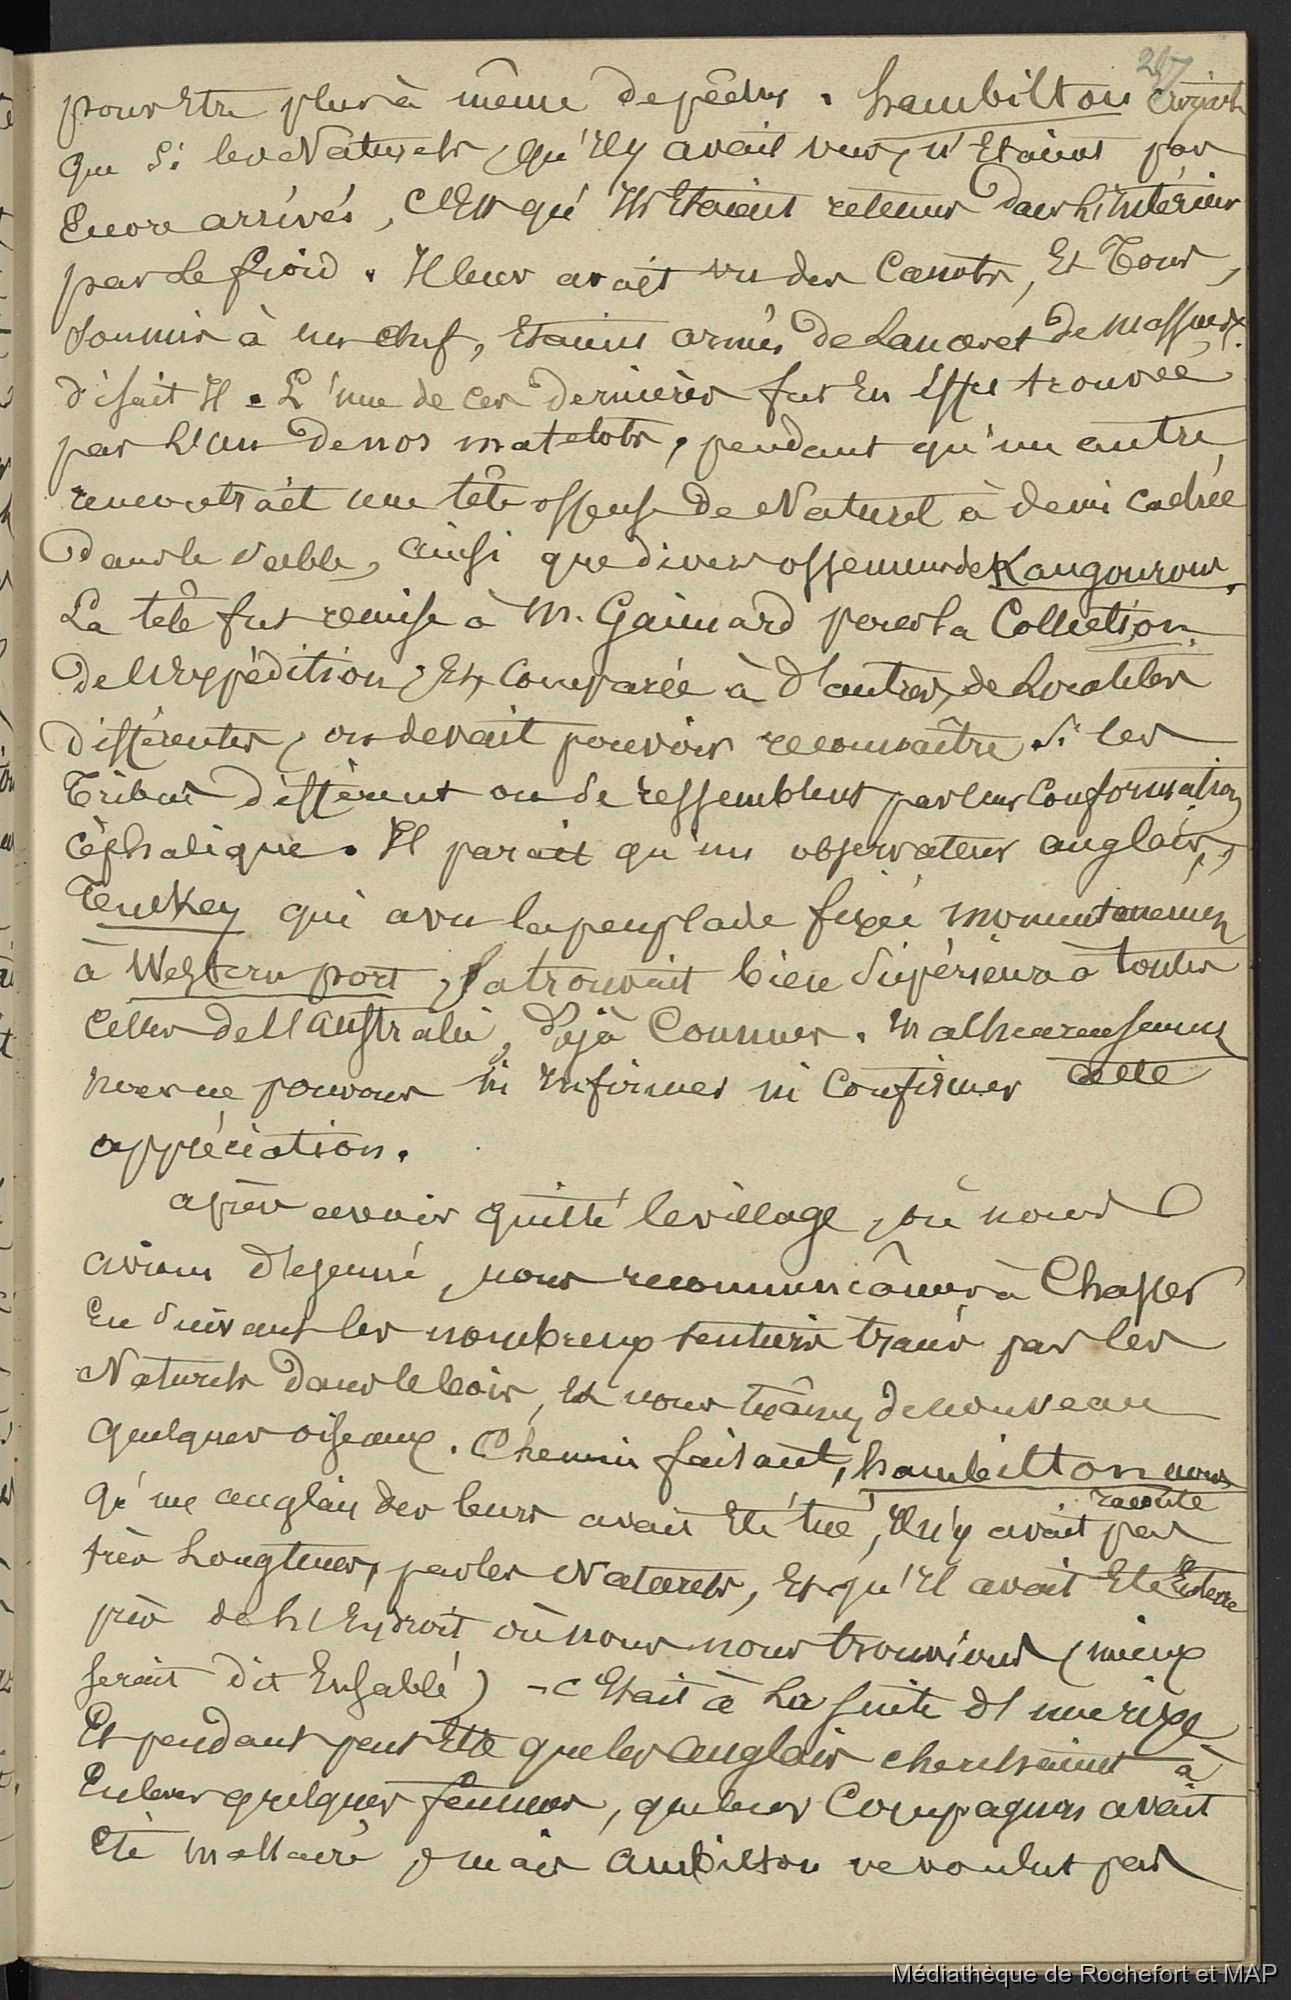 257
pour Etre plus à même de pêcher. hambilton croyait
que si les Naturels, qu'Il y avait vus, n'Etaient pas
Encore arrivés, c'Est qu'Ils Etaient retenus dans l'Intérieur
par le froid. Il leur avait vu des Canots, Et Tous,
soumis à un chef, Etaient armés de Lances et de massues,
disait Il. L'une de ces dernières fut En Effet trouvée
par L'un de nos matelots, pendant qu'un autre
rencontrait une tête osseuse de Naturel à demi cachée
Dans le sable, ainsi que divers ossemens de Kangourous.
La tête fut remise à M. Gaimard pour la Collection
de l'Expédition, Et, Comparée à d'autres, de Localités
différentes, on devait pouvoir reconnaître si les
Tribus diffèrent ou se ressemblent par leur Conformation
céphalique. Il parait qu'un observateur anglais,
qui a vu la peuplade fixée momentanément
à Western port, la trouvait bien supérieure à toutes
Celles de l'Australie, déjà Connues. Malheureusement
nous ne pouvons ni Infirmer ni Confirmer cette
appréciation.
après avoir quitté le village, où nous
avions déjeuné, nous recommençâmes à Chasser
En suivant les nombreux sentiers tracés par les
Naturels dans le bois, Et nous tuâmes de nouveau
quelques oiseaux. Chemin faisant, hambilton nous
raconte
qu'un anglais des leurs avait Eté tué, Il n'y avait pas
très Longtems, par les Naturels, Et qu'Il avait Eté Enterré
près de L'Endroit où nous nous trouvions (mieux
serait dit Ensablé) - c'Etait à La suite d'une rixe
Et pendant peut Etre que les Anglais cherchaient à
Enlever quelques femmes, que leur Compagnon avait
été massacré, mais Ambilton ne voulut pas
Médiathèque de Rochefort et MAP